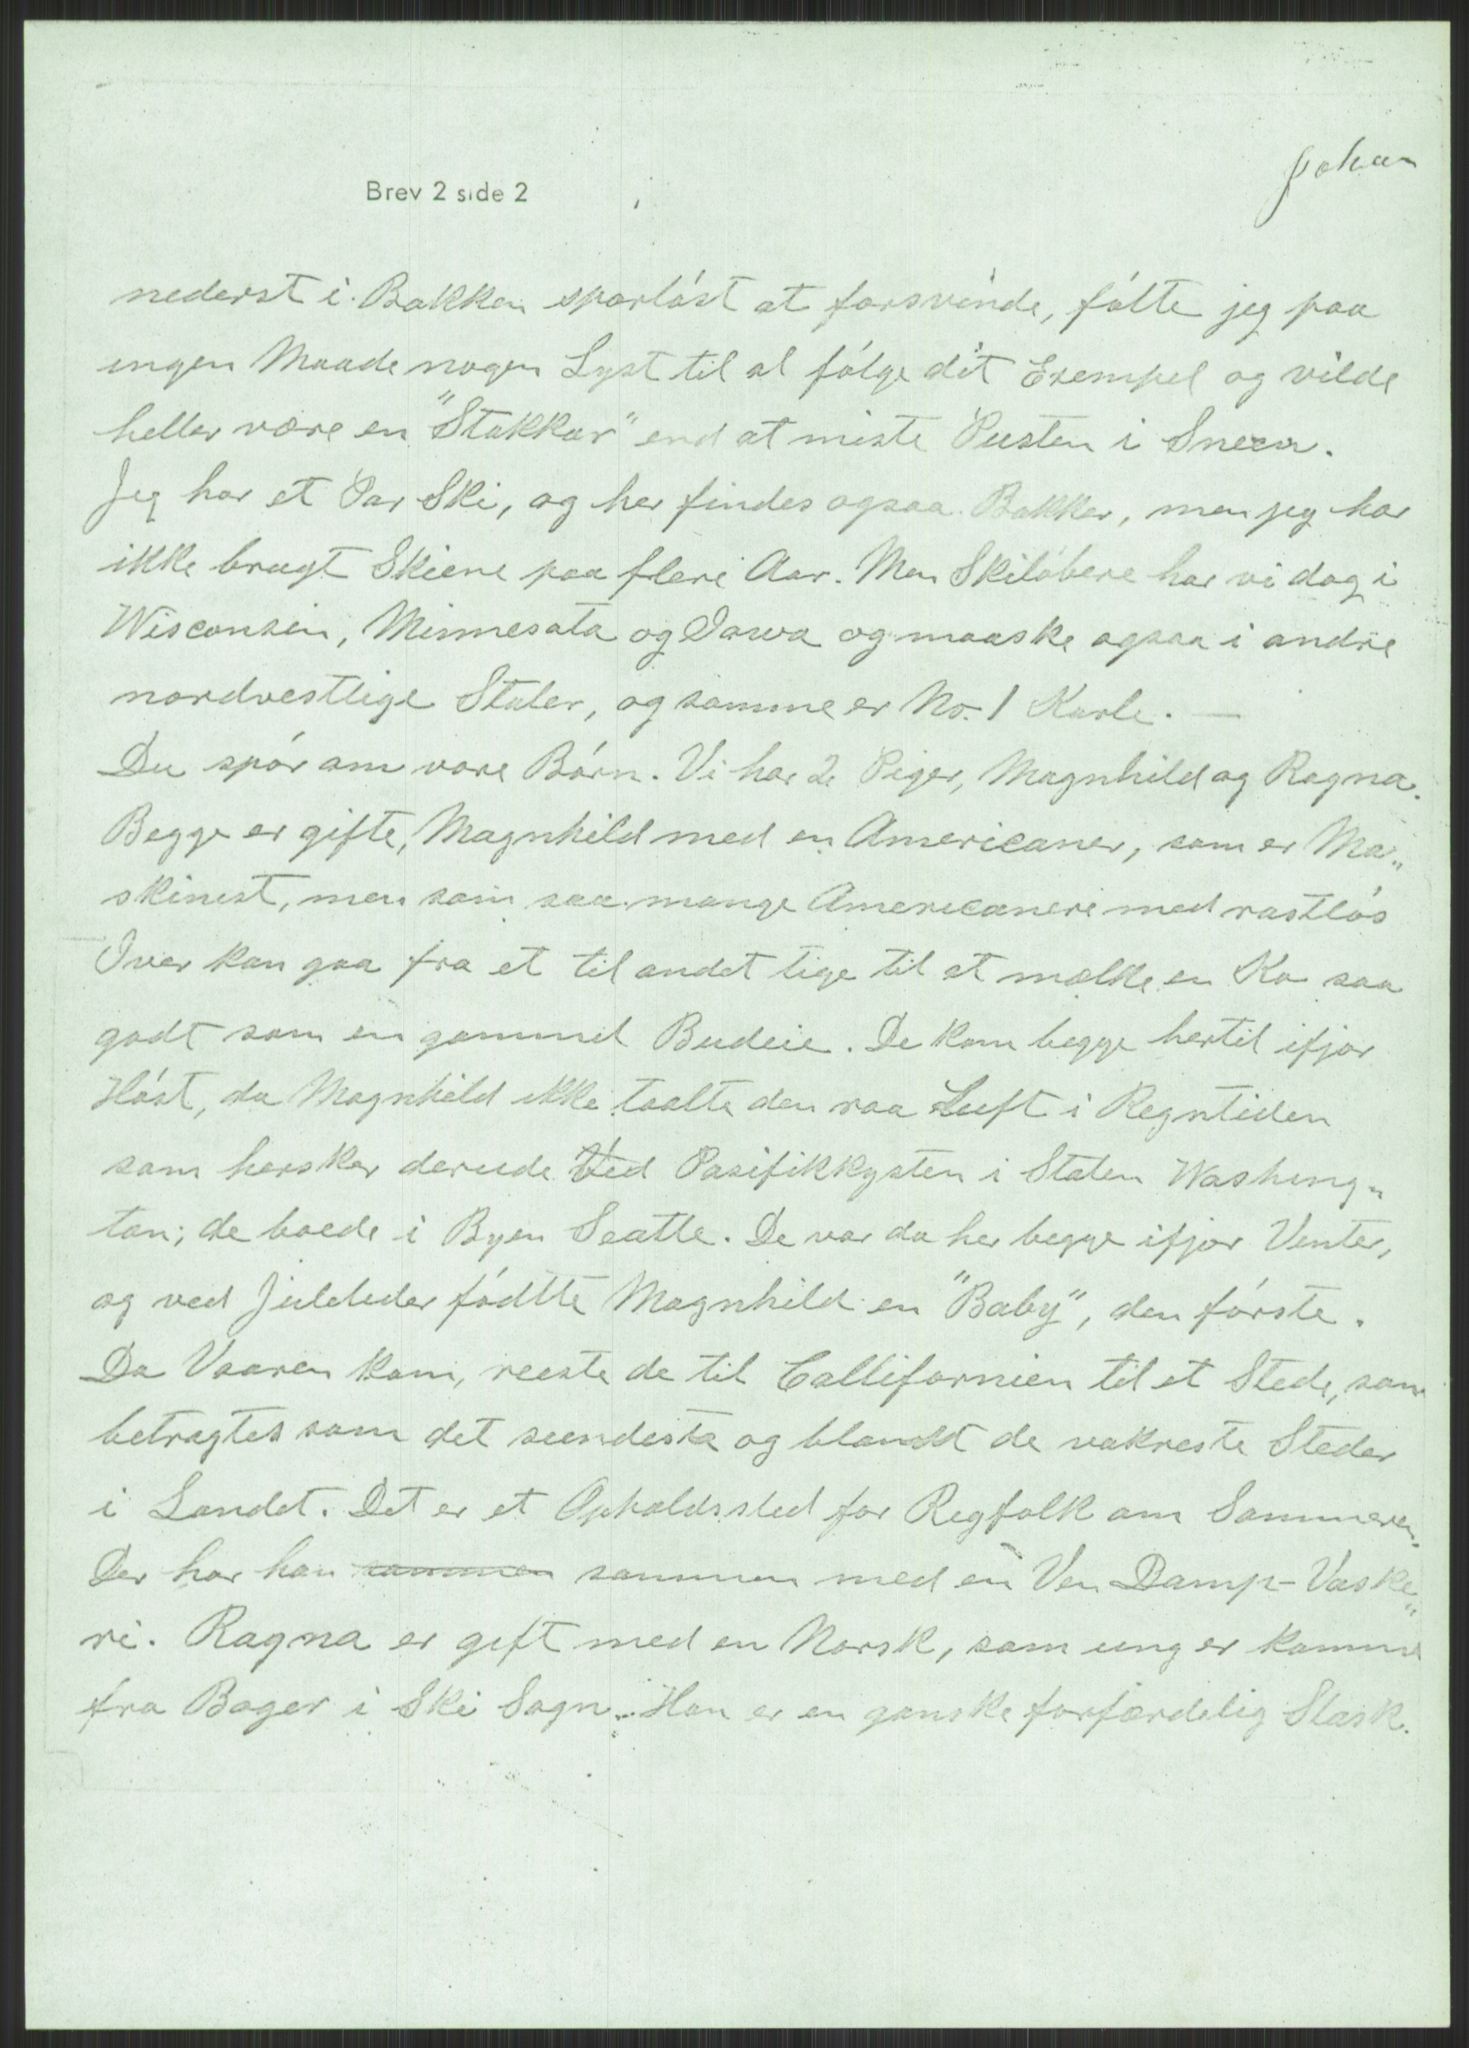 Johan
Brev 2 side 2
nederst i Bakken sporløst at forsvinde, følte jeg paa
ingen Maade nogen Lyst til at følge dit Exempel og vilde
heller være en "Stakkar" end at miste Pusten i Sneen.
Jeg har et Par Ski, og her findes ogsaa Bakker, men jeg har
ikke brugt Skiene paa flere Aar. Men Skiløbere har vi dog i
Wisconsin, Minnesota og Iowa og maaske ogsaa i andre
nordvestlige Stater, og somme er No. 1 Karle. —
Du spør om vore Børn. Vi har 2 Piger, Magnhild og Ragna.
Begge er gifte, Magnhild med en Americaner, som er Ma„
skinist, men som saa mange Americanere med rastløs
Iver kan gaa fra et til andet lige til at mælke en Ko saa
godt som en gammel Budeie. De kom begge hertil ifjor
Høst, da Magnhild ikke taalte den raa Luft i Regntiden
som hersker derude Ved Pasifikkysten i Staten Washing„
ton; de boede i Byen Seatle. De var da her begge ifjor Vinter,
og ved Juletider fødtte Magnhild en "Baby", den første.
Da Vaaren kom, reiste de til Callifornien til et Sted, som
betragtes som det sundeste og blandt de vakreste Steder
i Landet. Det er et Opholdssted for Rigfolk om Sommeren.
Der har han sammen sammen med en Ven Damp-Vaske„
ri. Ragna er gift med en Norsk, som ung er kommet
fra Bøger i Ski Sogn. Han er en ganske forfærdelig Slask.